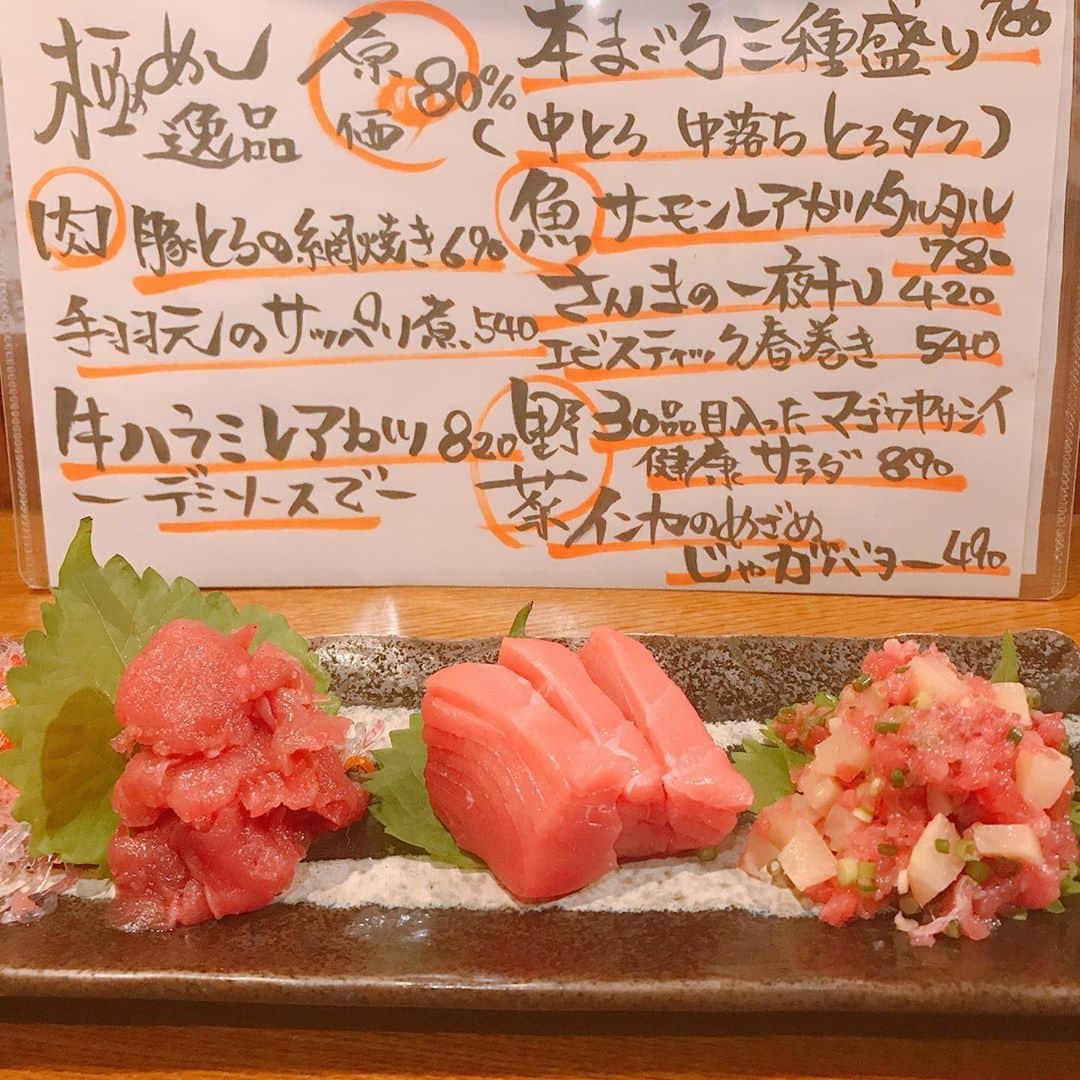 極めめし
逸品
原価
80%
肉
豚とろの網焼き 690
手羽元のサッパリ煮 540
牛ハラミレアカツ 820
ーデミソースでー
本まぐろ三種盛り
(中とろ 中落ち とろタク)
魚
サーモンレアカツタルタル
780
さんまの一夜干し 420
エビスティック春巻き 540
野菜
30品目入ったマゴワヤサシイ
健康サラダ 890
インカのめざめ
じゃがバター 490